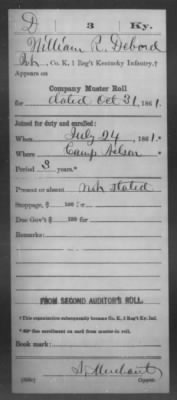 D 3 Ky.
William R. Debord
Pvt., Co. K, 1 Reg't Kentucky Infantry.†
Appears on
Company Muster Roll
for dated Oct 31, 1861.
Joined for duty and enrolled:
When July 24, 1861.*
Where Camp Nelson
Period 3 years.*
Present or absent Not stated
Stoppage, $ 100 for
Due Gov't $ 100 for
Remarks:
FROM SECOND AUDITOR'S ROLL.
† This organization subsequently became Co. K, 3 Reg't Ky. Inf.
* See enrollment on card from muster-in roll.
Book mark:
Copyist.